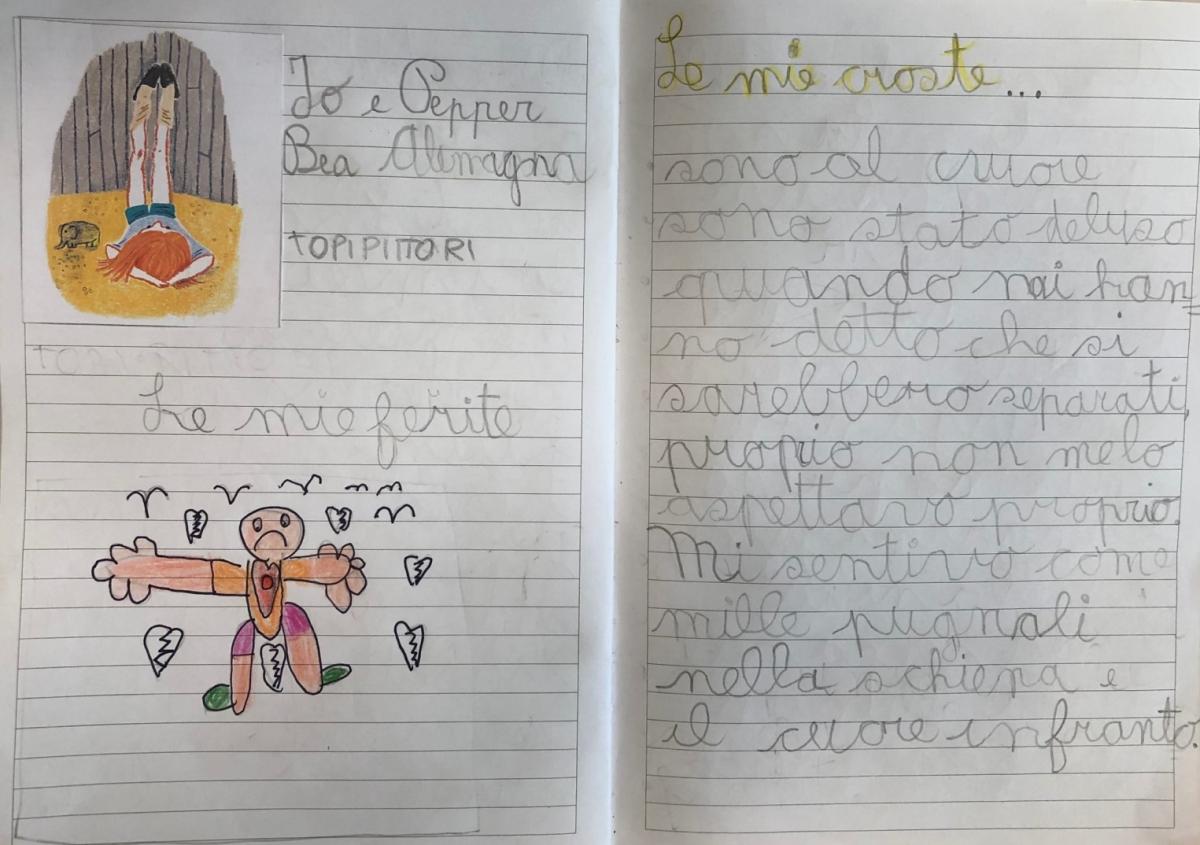 Io e Pepper
Bea Alemagna
TOPIPITTORI
Le mie ferite
Le mie croste...
sono al cuore
sono stato deluso
quando mi han
no detto che si
sarebbero separati,
propio non melo
aspettavo proprio.
Mi sentivo come
mille pugnali
nella schiena e
il cuore infranto.